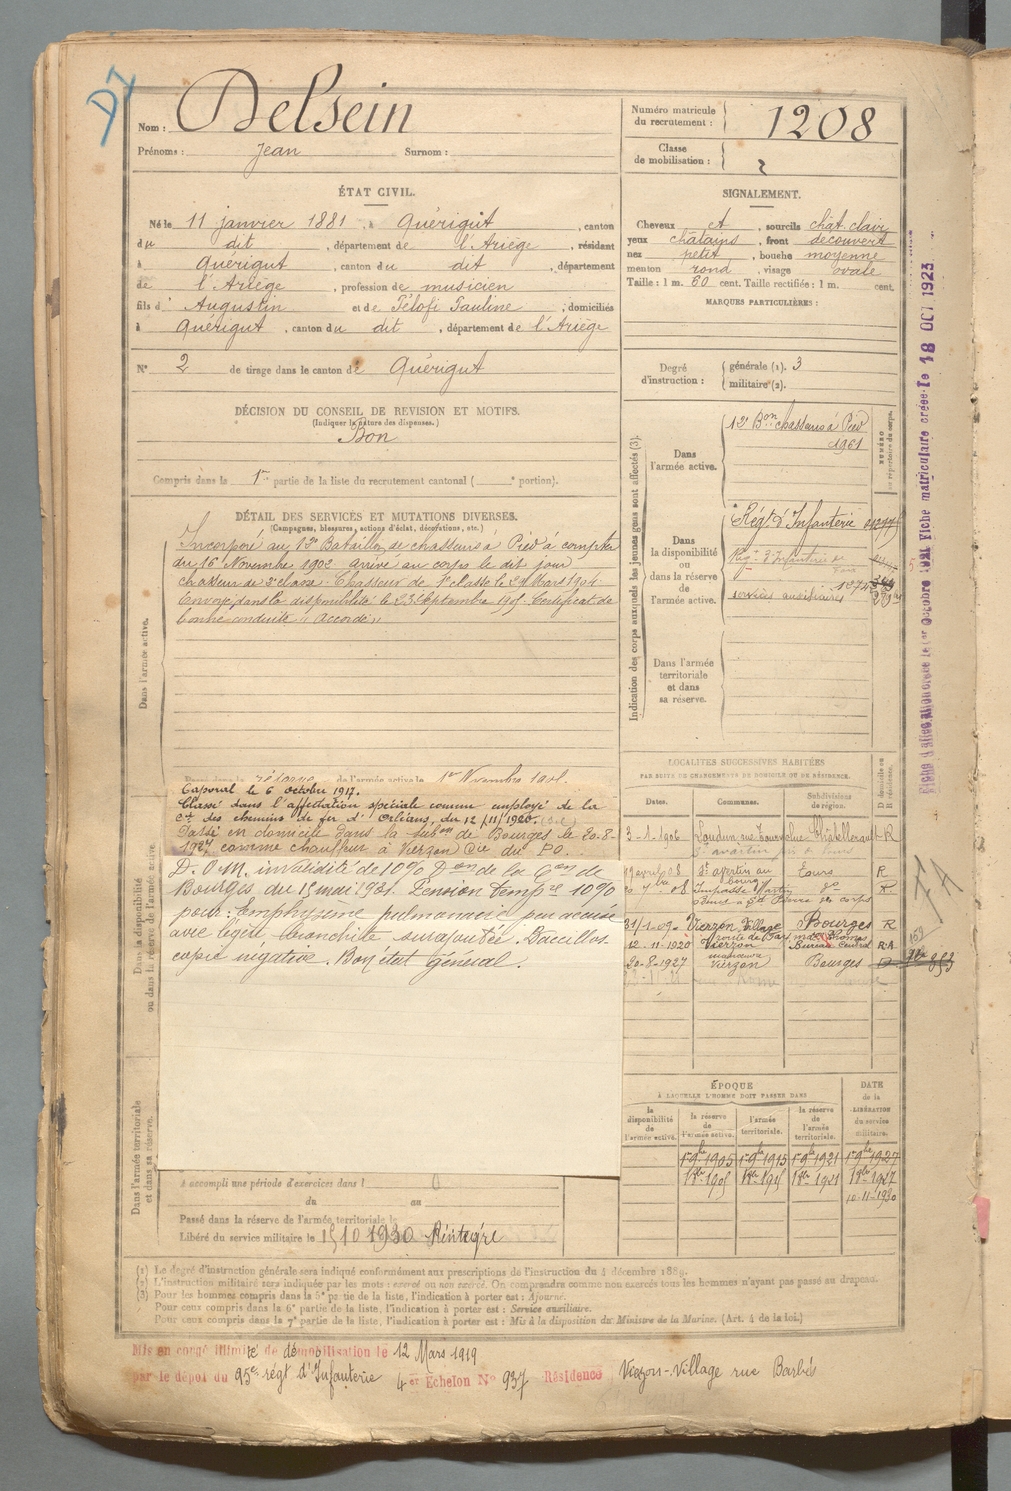 Nom : Delsein
Prénoms : Jean Surnom :
Numéro matricule
du recrutement : 1208
Classe
de mobilisation :
ÉTAT CIVIL.
Né le 11 janvier 1881, à Quérigut, canton
du dit, département de l'Ariège, résidant
à Quérigut, canton du dit, département
de l'Ariège, profession de musicien
fils d' Augustin et de Télofi Pauline, domiciliés
à Quérigut, canton du dit, département de l'Ariège
N° 2 de tirage dans le canton de Quérigut
SIGNALEMENT.
Cheveux et, sourcils chât. clair
yeux châtains, front découvert
nez petit, bouche moyenne
menton rond, visage ovale
Taille : 1 m. 60 cent. Taille rectifiée : 1 m. cent.
MARQUES PARTICULIÈRES :
Degré
d'instruction :
générale (1). 3
militaire (2).
DÉCISION DU CONSEIL DE REVISION ET MOTIFS.
(Indiquer la nature des dispenses.)
Bon
Compris dans la 1re partie de la liste du recrutement cantonal ( e portion).
DÉTAIL DES SERVICES ET MUTATIONS DIVERSES.
(Campagnes, blessures, actions d'éclat, décorations, etc.)
Dans l'armée active.
Incorporé au Bataillon de chasseurs à Pied à compter
du 16 Novembre 1902 arrivé au corps le dit jour
chasseur de 2e classe. Chasseur de 1e classe le 29 Mars 1904.
Envoyé dans la disponibilité le 23 Septembre 1905. Certificat de
bonne conduite " Accordé "
réserve de l'armée active le 1er Novembre
Caporal le 6 octobre 1917.
Classé dans l'affectation spéciale comme employé de la
Cie des chemins de fer d'Orléans, du 12/11/1920.
Passé en domicile dans la subon de Bourges le 20-8-
1927 comme chauffeur à Vierzon Cie du P.O.
Dans la disponibilité
ou dans la réserve de l'armée active.
invalidité de 10% de la Con de
Bourges du 15 mai 1921. Pension tempre 10%
pour : Emphyzème pulmonaire peu accusé
avec légère bronchite surajoutée. Baccillos
copie négative. Bon état général.
Dans l'armée territoriale
et dans sa réserve.
A accompli une période d'exercices dans l
du au
Passé dans la réserve de l'armée territoriale le
Libéré du service militaire le 15 10 1930 Réintégré
Indication des corps auxquels les jeunes gens sont affectés (3).
Dans
l'armée active.
12e Bon chasseurs à Pied
1961
NUMÉRO
au répertoire du corps.
Dans
la disponibilité
ou
dans la réserve
de
l'armée active.
Régt d'Infanterie
services auxiliaires
Dans l'armée
territoriale
et dans
sa réserve.
LOCALITÉS SUCCESSIVES HABITÉES
PAR SUITE DE CHANGEMENTS DE DOMICILE OU DE RÉSIDENCE.
Dates. Communes. Subdivisions
de région. D domicile ou
R résidence.
3-1-1906 Loudun Châtellerault R
08 St avertin Tours R
08 Impasse Martin do R
31/1-09 Vierzon Village Bourges R
12-11-1920 Vierzon Bureau Central R.A
20-8-1927 Vierzon Bourges
ÉPOQUE
À LAQUELLE L'HOMME DOIT PASSER DANS
la
disponibilité
de
l'armée active.
la réserve
de
l'armée active.
l'armée
territoriale.
la réserve
de
l'armée
territoriale.
DATE
de la
LIBÉRATION
du service
militaire.
1er 9bre 1905 1er 9bre 1915 1er 9bre 1921 1er 9bre 1927
10-11-1930
(1) Le degré d'instruction générale sera indiqué conformément aux prescriptions de l'instruction du 4 décembre 1889.
(2) L'instruction militaire sera indiquée par les mots : exercé ou non exercé. On comprendra comme non exercés tous les hommes n'ayant pas passé au drapeau.
(3) Pour les hommes compris dans la 5e partie de la liste, l'indication à porter est : Ajourné.
Pour ceux compris dans la 6e partie de la liste, l'indication à porter est : Service auxiliaire.
Pour ceux compris dans la 7e partie de la liste, l'indication à porter est : Mis à la disposition du Ministre de la Marine. (Art. 4 de la loi.)
Mis en congé illimité de démobilisation le 12 Mars 1919
par le dépôt du 95e régt d'Infanterie 4er Echelon N° 937 Résidence Vierzon-Village rue Barbès
Fiche matriculaire créée le 18 OCT 1923